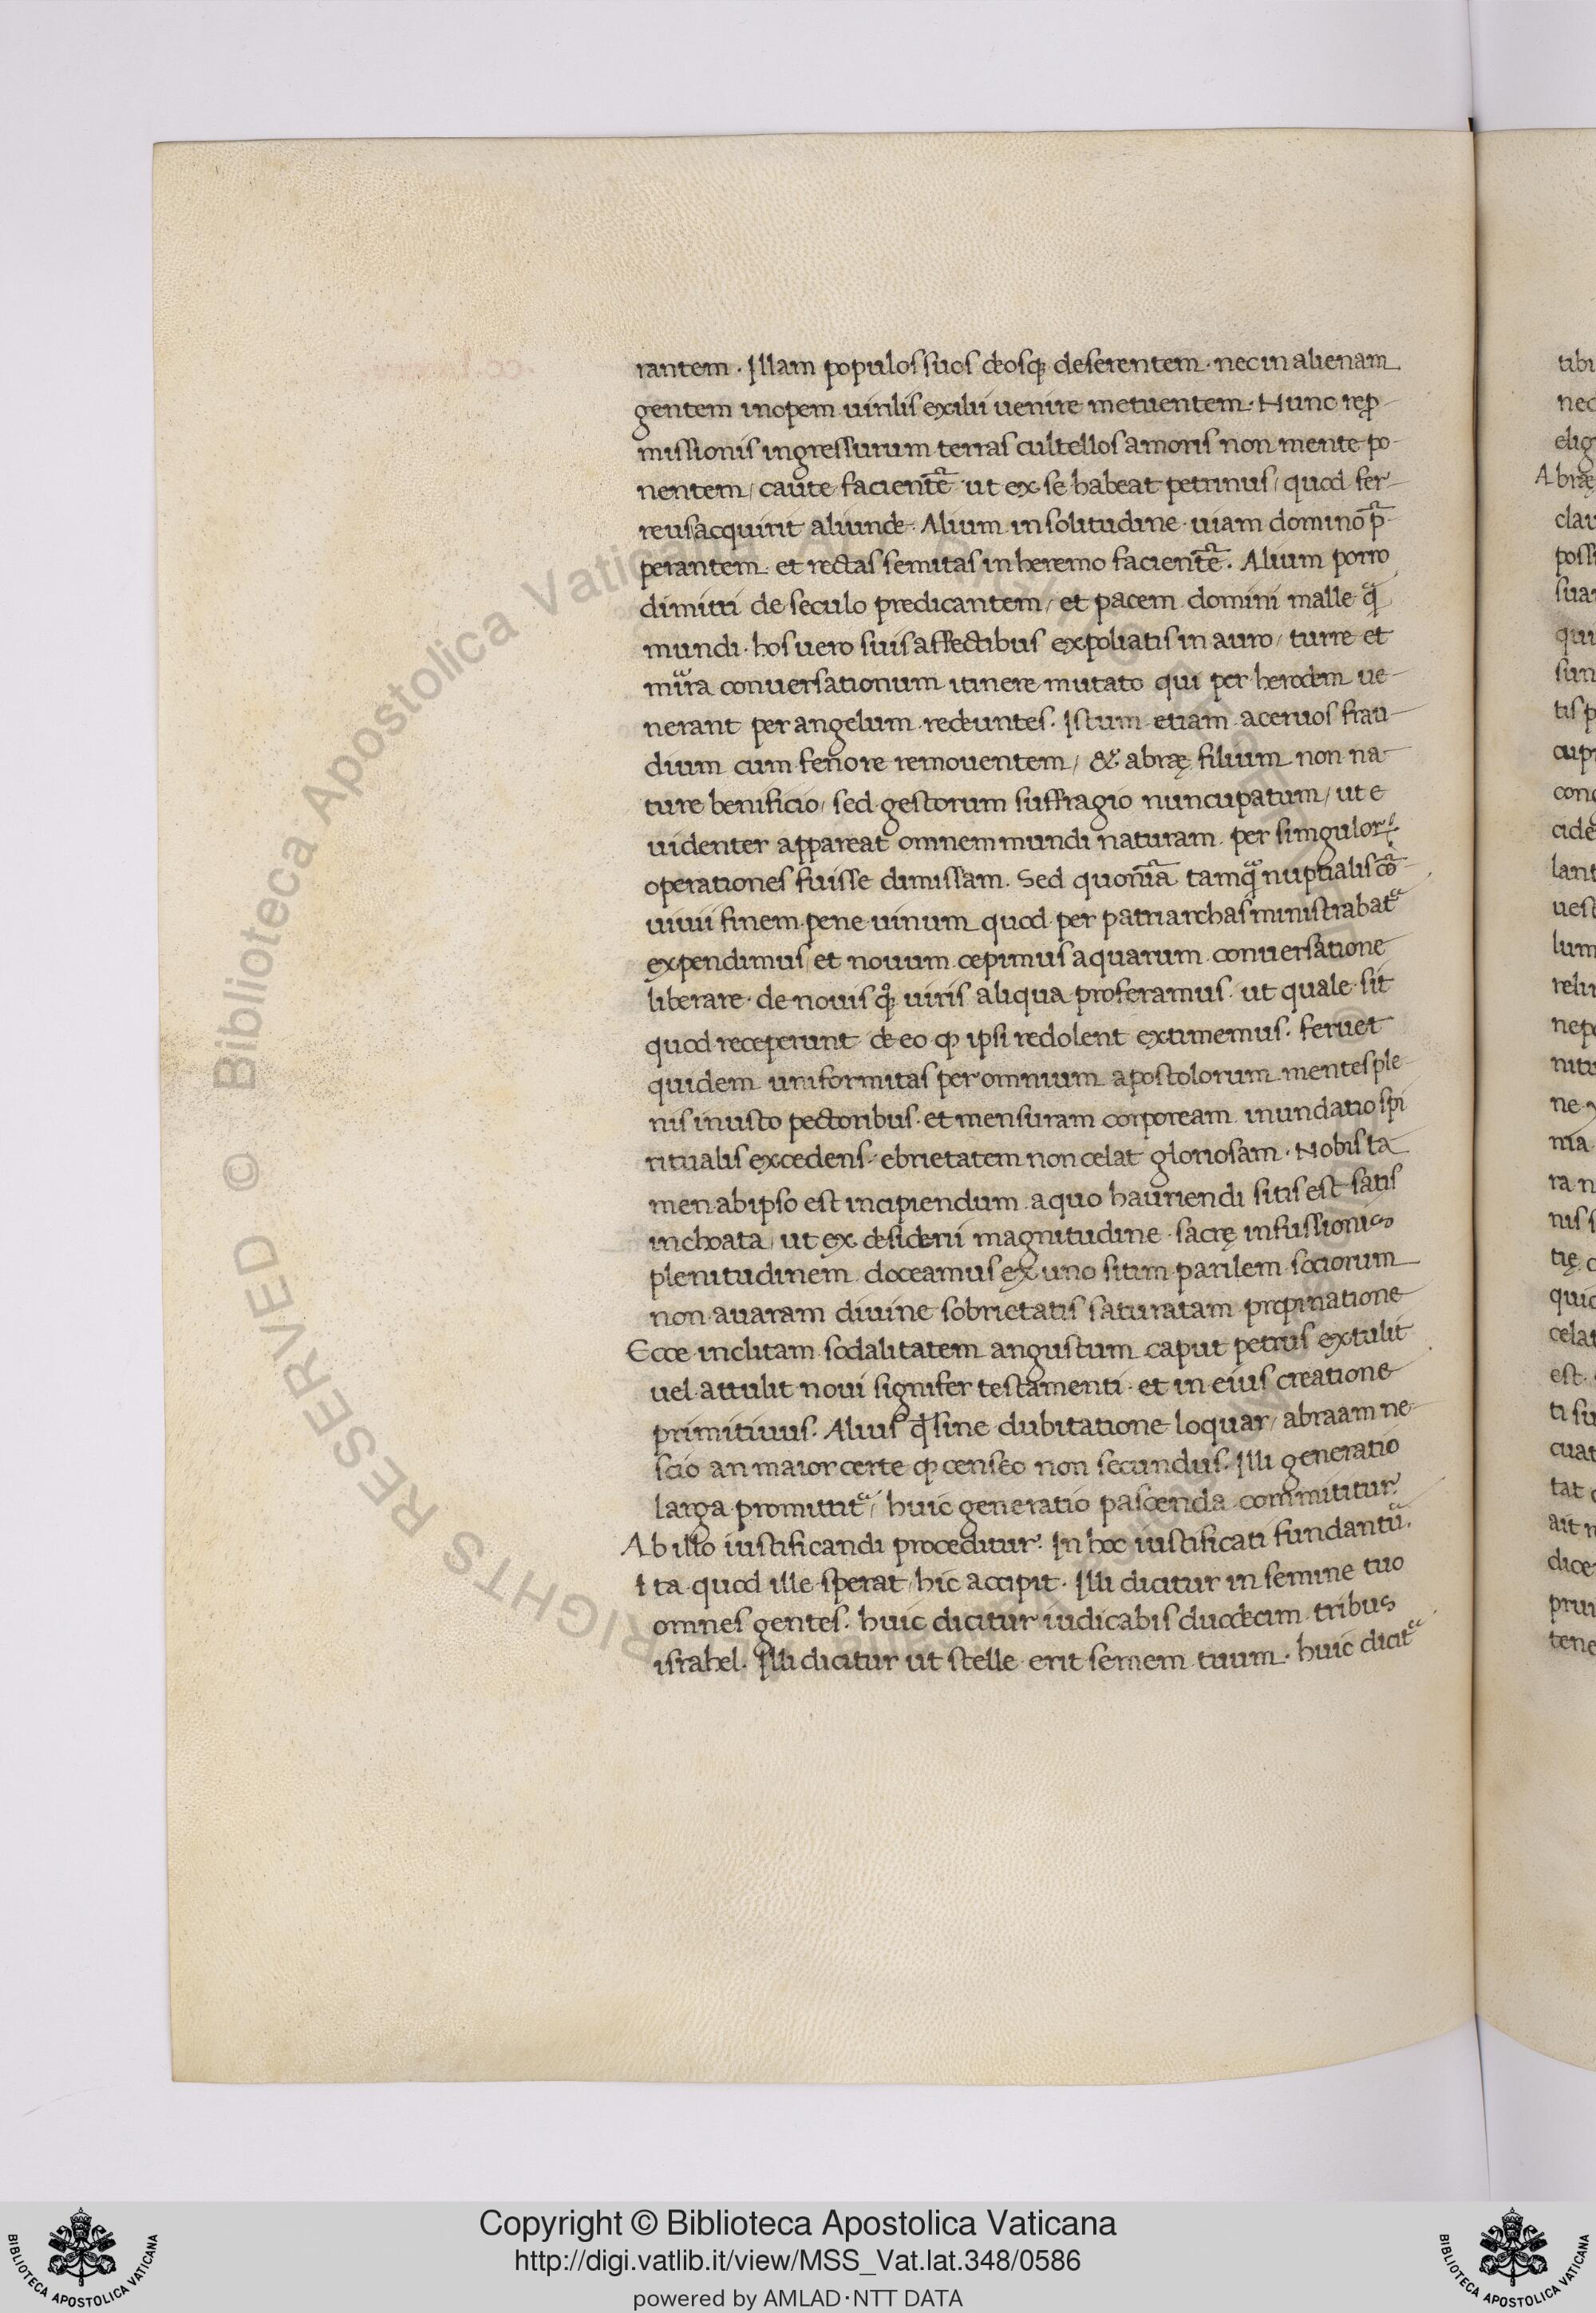 rantem. Illam populos suos deosq; deserentem. nec in alienam
gentem inopem uirilis exilii uenire metuentem. Nunc rep̄
missionis ingressurum terras cultellos amoris non mente po-
nentem, caute facientē ut ex se habeat petrinus, quod fer
reus acquirit aliunde. Alium in solitudine uiam domino p̄
perantem. et rectas semitas in heremo facientē. Alium porro
dimitti de seculo predicantem, et pacem domini malle q̃
mundi. hos uero suis affectibus expoliatis in auro, turre et
mirra conuersationum itinere mutato qui per herodem ue-
nerant per angelum redeuntes. Istum etiam aceruos frau
dium cum fenore remouentem, & abrę filium non na-
ture benificio, sed gestorum suffragio nuncupatum, ut e
uidenter appareat omnem mundi naturam per singulor
operationes fuisse dimissam. Sed quoniā tamq̃ nuptialis cō
uiuii finem pene uinum quod per patriarchas ministrabat᷑
expendimus, et nouum cepimus aquarum conuersatione
liberare. de nouis q; uiris aliqua proferamus. ut quale sit
quod receperunt de eo qͥ ipsi redolent extimemus. feruet
quidem uniformitas per omnium apostolorum mentes ple
nis in usto pectoribus. et mensuram corpoream inundatio spi
ritualis excedens. ebrietatem non celat gloriosam. Nobis ta
men ab ipso est incipiendum a quo hauriendi sitis est satis
inchoata, ut ex desiderii magnitudine sacrę infussionis
plenitudinem doceamus ex uno sitim parilem sociorum
non auaram diuine sobrietatis saturatam propinatione
Ecce inclitam sodalitatem angustum caput petrus extulit
uel attulit noui signifer testamenti. et in eius creatione
primitiuus. Alius q̄ sine dubitatione loquar, abraam ne
scio an maior certe qͥ censeo non secundus. Illi generatio
larga promittit᷑, huic generatio pascenda commititur.
Ab illo iustificandi proceditur. In hoc iustificati fundant᷑.
Ita quod ille sperat, hic accipit. Illi dicitur in semine tuo
omnes gentes. huic dicitur iudicabis duodecim tribus
israhel. Illi dicitur ut stelle erit semem tuum. huic dicit᷑
Copyright © Biblioteca Apostolica Vaticana
http://digi.vatlib.it/view/MSS_Vat.lat.348/0586
powered by AMLAD·NTT DATA